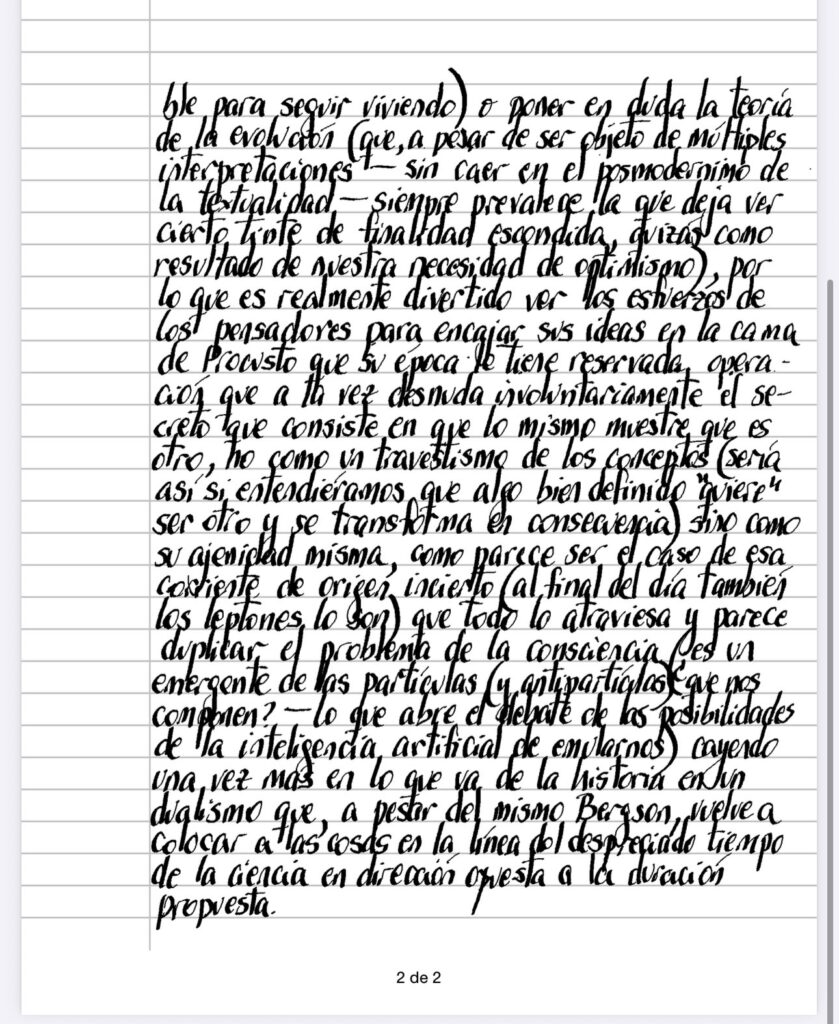 ble para seguir viviendo) o poner en duda la teoría
de la evolución (que, a pesar de ser objeto de múltiples
interpretaciones — sin caer en el posmodernimo de
la textualidad — siempre prevalece la que deja ver
cierto tinte de finalidad escondida, quizás como
resultado de nuestra necesidad de optimismo), por
lo que es realmente divertido ver los esfuerzos de
los pensadores para encajar sus ideas en la cama
de Procusto que su época le tiene reservada, opera-
ción que a la vez desnuda involuntariamente el se-
creto que consiste en que lo mismo muestre que es
otro, no como un travestismo de los conceptos (sería
así si entendiéramos que algo bien definido "quiere"
ser otro y se transforma en consecuencia) sino como
su ajenidad misma, como parece ser el caso de esa
corriente de origen incierto (al final del día también
los leptones lo son) que todo lo atraviesa y parece
duplicar el problema de la consciencia (¿es un
emergente de las partículas (y antipartículas) que nos
componen? — lo que abre el debate de las posibilidades
de la inteligencia artificial de emularnos) cayendo
una vez más en lo que va de la historia en un
dualismo que, a pesar del mismo Bergson, vuelve a
colocar a las cosas en la línea del despreciado tiempo
de la ciencia en dirección opuesta a la duración
propuesta.
2 de 2